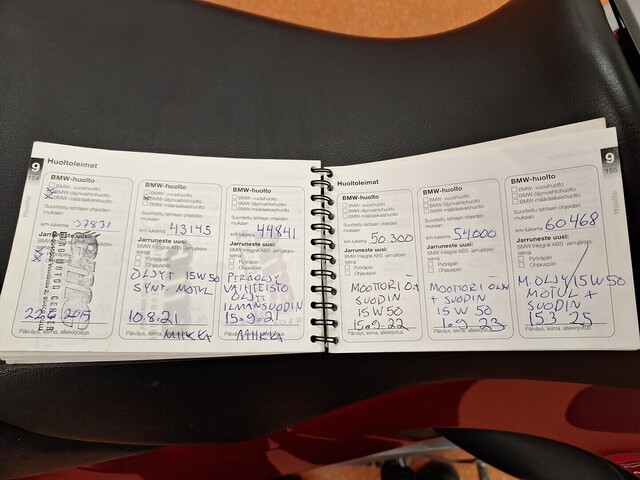 9
Huoltoleimat
184
Huolto
BMW-huolto
BMW- vuosihuolto
BMW-öljynvaihtohuolto
BMW-määräaikaishuolto
Suoritettu tehtaan ohjeiden
mukaan
km-lukema 37831
Jarruneste uusi:
BMW-huolto
BMW- vuosihuolto
BMW-öljynvaihtohuolto
BMW-määräaikaishuolto
Suoritettu tehtaan ohjeiden
mukaan
km-lukema 43145
Jarruneste uusi:
BMW integral ABS -jarrujärjes-
telmä
Pyöräpiiri
Ohjauspiiri
ÖLJYT 15W50
SYNT. MOTUL
10.8.21
MIIKKA
Päiväys, leima, allekirjoitus
BMW-huolto
BMW- vuosihuolto
BMW-öljynvaihtohuolto
BMW-määräaikaishuolto
Suoritettu tehtaan ohjeiden
mukaan
km-lukema 44841
Jarruneste uusi:
BMW integral ABS -jarrujärjes-
telmä
Pyöräpiiri
Ohjauspiiri
PERÄÖLJY
VAIHTEISTO
ÖLJY
ILMANSUODIN
15.9.21
MIIKKA
Päiväys, leima, allekirjoitus
9
Huoltoleimat
185
BMW-huolto
BMW- vuosihuolto
BMW-öljynvaihtohuolto
BMW-määräaikaishuolto
Suoritettu tehtaan ohjeiden
mukaan
km-lukema 50300
Jarruneste uusi:
BMW integral ABS -jarrujärjes-
telmä
Pyöräpiiri
Ohjauspiiri
MOOTTORI Ö+
SUODIN
15W50
15.9.22
Päiväys, leima, allekirjoitus
BMW-huolto
BMW- vuosihuolto
BMW-öljynvaihtohuolto
BMW-määräaikaishuolto
Suoritettu tehtaan ohjeiden
mukaan
km-lukema 54000
Jarruneste uusi:
BMW integral ABS -jarrujärjes-
telmä
Pyöräpiiri
Ohjauspiiri
MOOTTORI ÖLJY
+ SUODIN
15W 50
1.9.23
Päiväys, leima, allekirjoitus
BMW-huolto
BMW- vuosihuolto
BMW-öljynvaihtohuolto
BMW-määräaikaishuolto
Suoritettu tehtaan ohjeiden
mukaan
km-lukema 60468
Jarruneste uusi:
BMW integral ABS -jarrujärjes-
telmä
Pyöräpiiri
Ohjauspiiri
M. ÖLJY 15W50
MOTUL +
SUODIN
15.3.25
Päiväys, leima, allekirjoitus